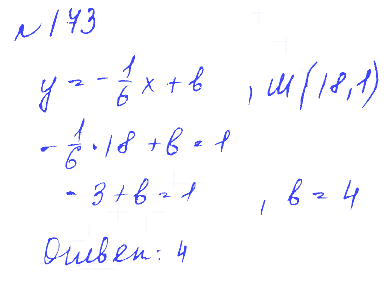 №173
y = -1/6 x + b, M(18,1)
-1/6 · 18 + b = 1
-3 + b = 1, b = 4
Ответ: 4